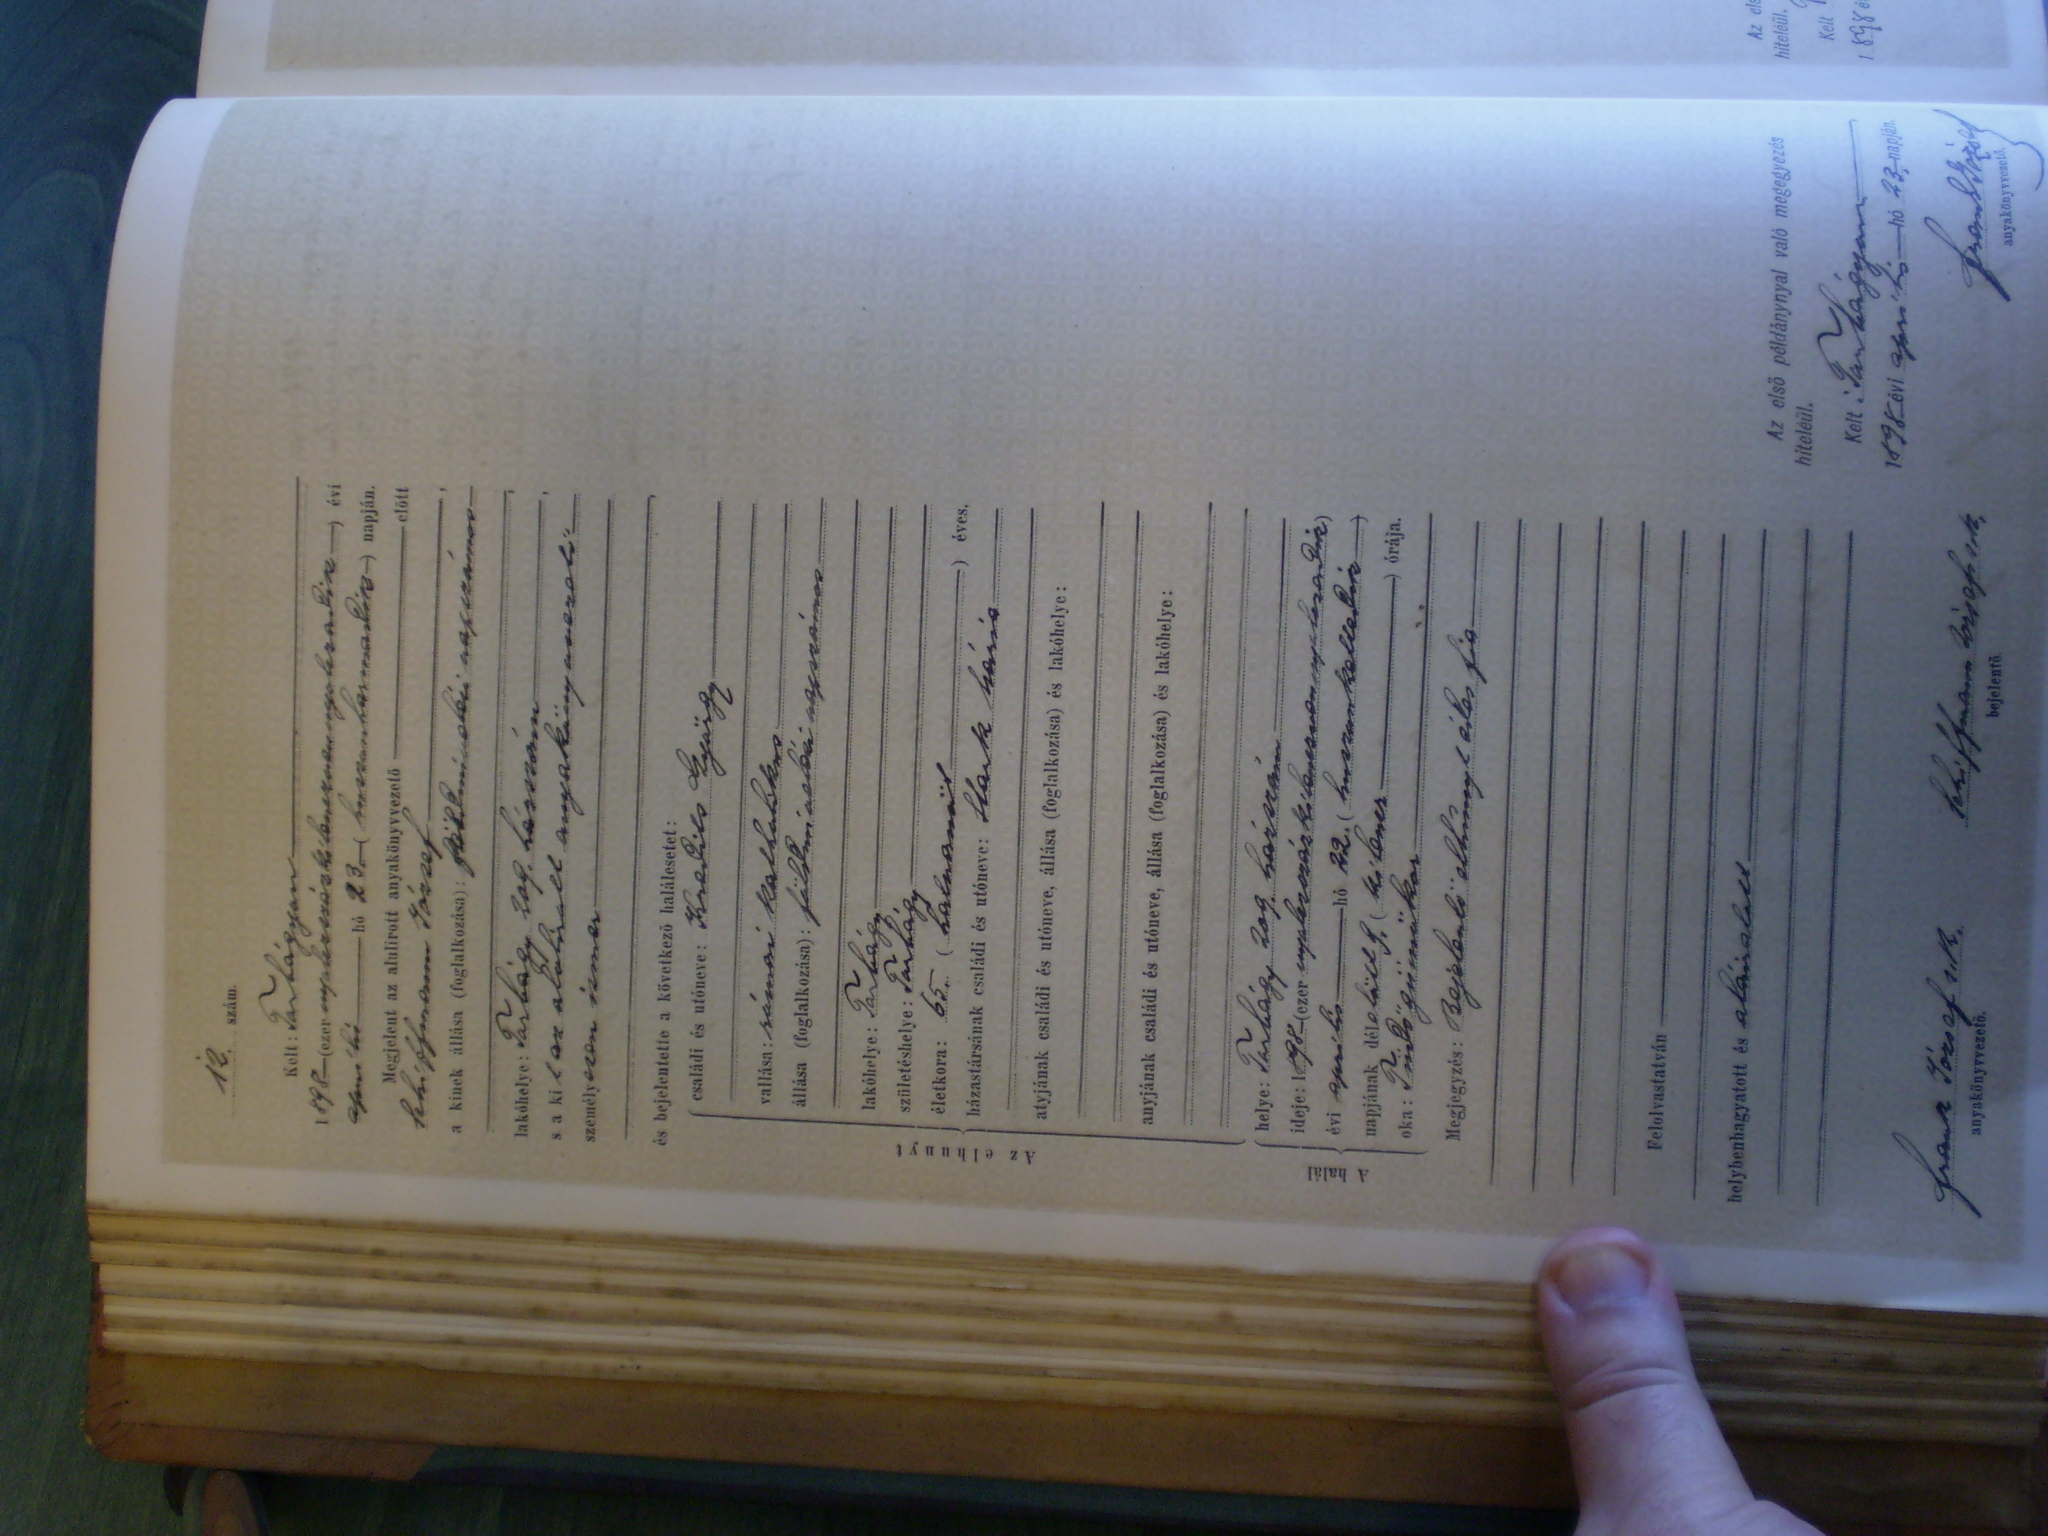 12. szám.
Kelt: Tarhágyan
1898 (ezer nyolczszázkilenczvennyolczadik) évi
aprilis hó 23. (huszonharmadik) napján.
Megjelent az alulirott anyakönyvvezető előtt
Schiffmann József
a kinek állása (foglalkozása): földmivelési napszámos
lakóhelye: Tarhágy 209. házszám
s a kit az alulirott anyakönyvvezető
személyesen ismer
és bejelentette a következő halálesetet:
Az elhunyt
családi és utóneve: György
vallása: római katholikus
állása (foglalkozása): földmivelési napszámos
lakóhelye: Tarhágy
születéshelye: Tarhágy
életkora: 65. (hatvanöt) éves,
házastársának családi és utóneve: Stark
atyjának családi és utóneve, állása (foglalkozása) és lakóhelye:
anyjának családi és utóneve, állása (foglalkozása) és lakóhelye:
A halál
helye: Tarhágy 209. házszám
ideje: 1898 (ezer nyolczszázkilenczvennyolczadik)
évi aprilis hó 22. (huszonkettedik)
napjának délelőtt 9. (kilencz) órája.
oka: Tüdőgümőkor
Megjegyzés: Bejelentő elhunyt édes fia
Felolvastatván
helybenhagyatott és aláiratott
Franz József s.k.
anyakönyvvezető.
Schiffmann József s.k.
bejelentő.
Az első példánynyal való megegyezés
hiteléül.
Kelt: Tarhágyan
1898 évi aprilis hó 23. napján.
Franz József
anyakönyvvezető.
Az els
hiteléül.
Kelt
1898 é